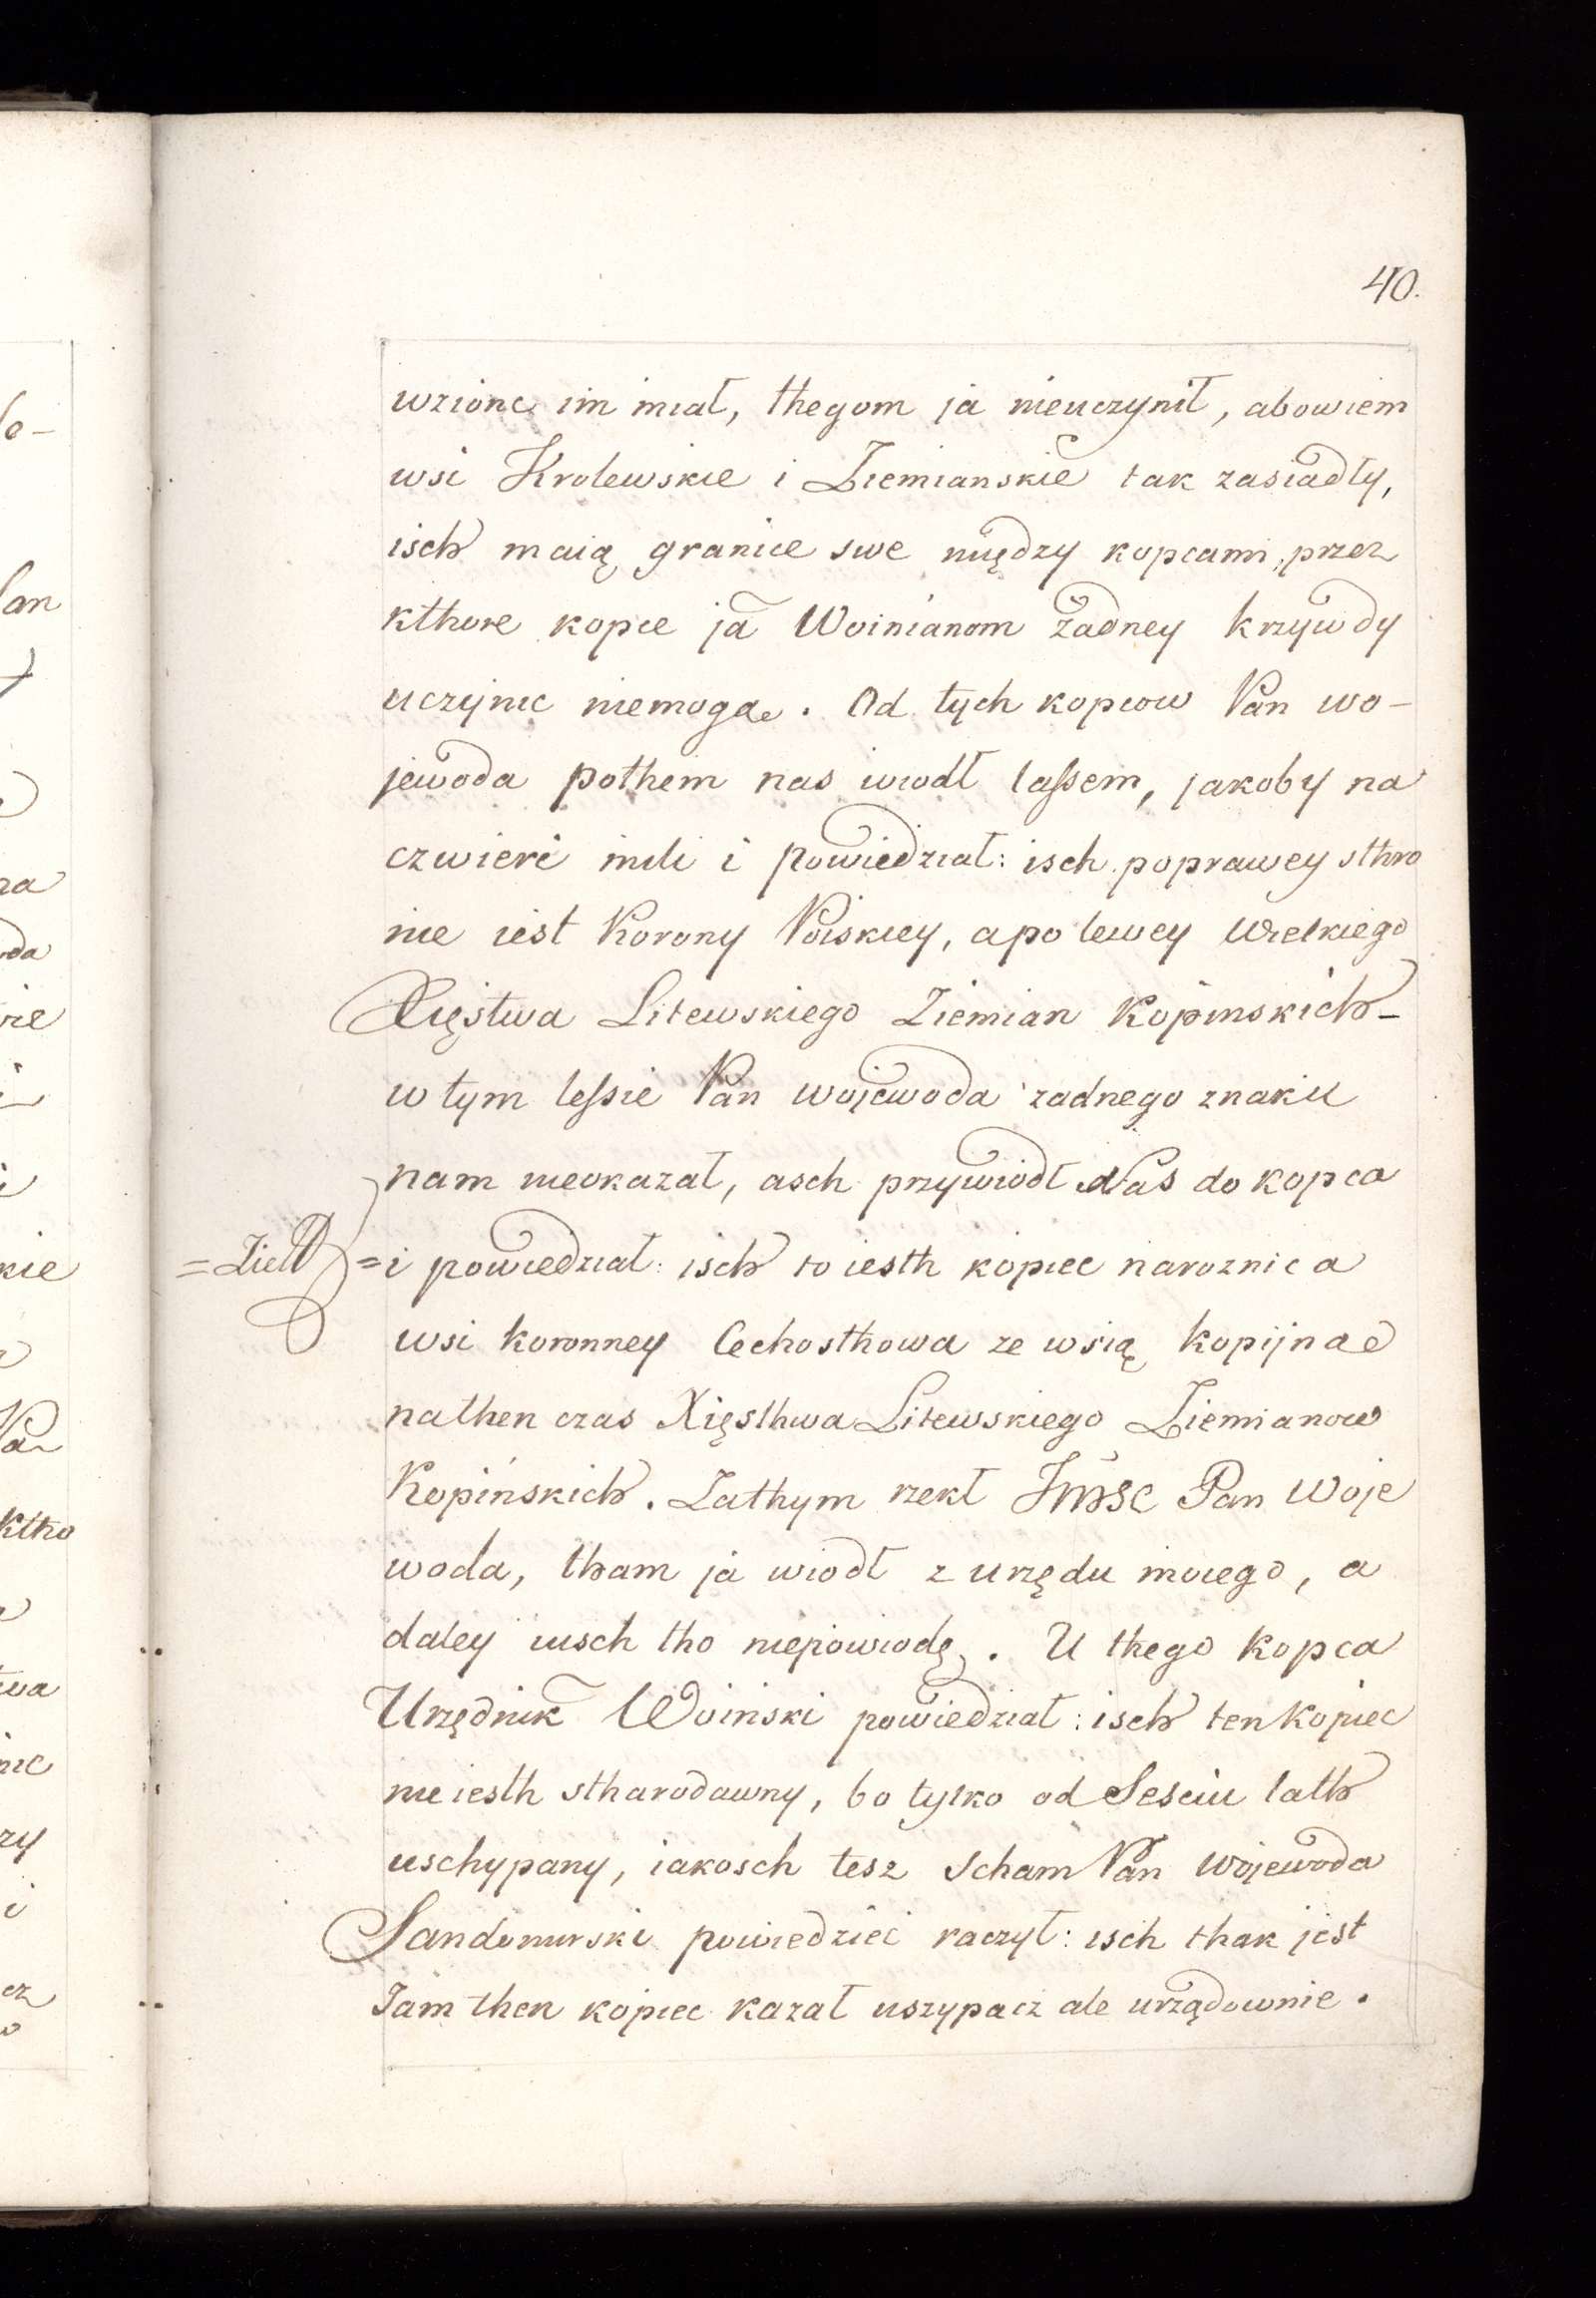 40.
wzionc im miał, thegom ja nieuczynił, abowiem
wsi Krolewskie i Ziemianskie tak zasiadły,
isch maią granice swe między kopcami, przez
kthore kopce ja Woinianom żadney krzywdy
uczynic niemogąe. Od tych kopcow Pan wo-
jewoda pothem nas wiodł lassem, jakoby na
czwierć mili i powiedział: isch poprawey sthro
nie iest Korony Polskiey, apo lewey Wielkiego
Xięstwa Litewskiego Ziemian Kopinskich-
w tym lessie Pan wojewoda zadnego znaku
nam nieokazał, asch przywiodł Nas do kopca
=i powiedział: isch to iesth kopiec naroznica
wsi koronney Cechosthowa ze wsią kopijnae
nathen czas Xięsthwa Litewskiego Ziemianow
Kopińskich. Zathym rzekł Jmsc Pan Woje
woda, tham ja wiodł z urzędu moiego, a
daley iusch tho niepowiodę. U thego kopca
Urzędnik Woinski powiedział: isch ten kopiec
nie iesth stharodawny, bo tylko od Sesciu lath
uschypany, iakosch tesz scham Pan Wojewoda
Sandomirski powiedzieć raczył: isch thak jest
Jam then kopiec kazał uszypacz ale urządownie.